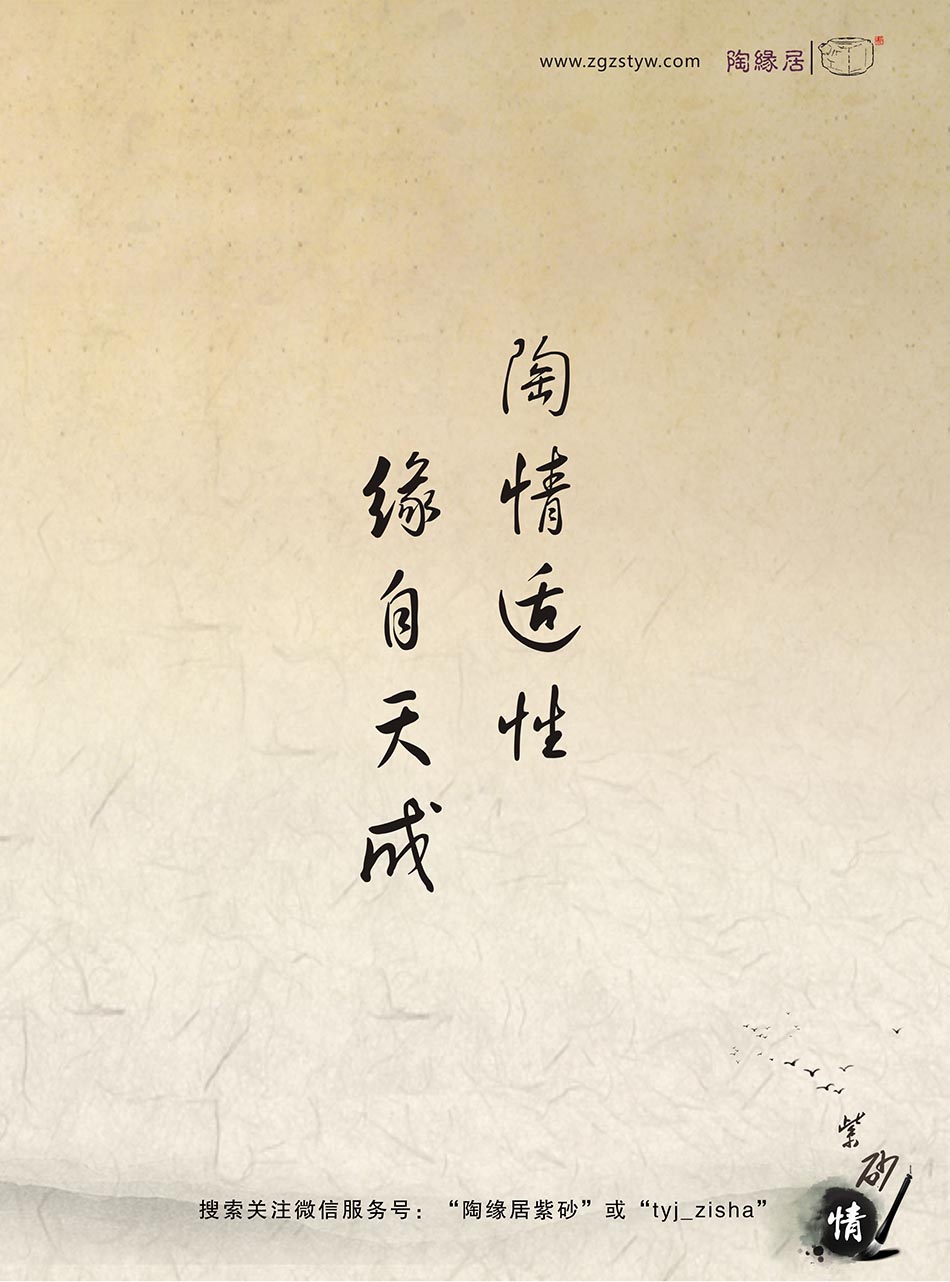 www.zgzstyw.com 陶緣居
陶情适性
缘自天成
紫砂
情
搜索关注微信服务号：“陶缘居紫砂”或“tyj_zisha”